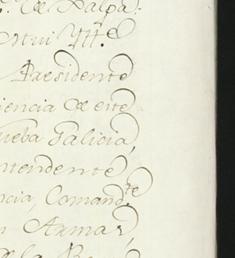 de Xalpa.
Mui Ylt.e
Praesidente
iencia de este
ueba Galicia,
ntendente
ncia, Comand.te
n Armas,
de la R